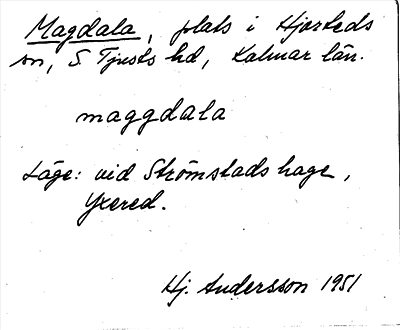 Magdala, plats i Hjorteds
sn, S Tjusts hd, Kalmar län.
maggdala
Läge: vid Strömstads hage,
Yxered.
Hj. Andersson 1951